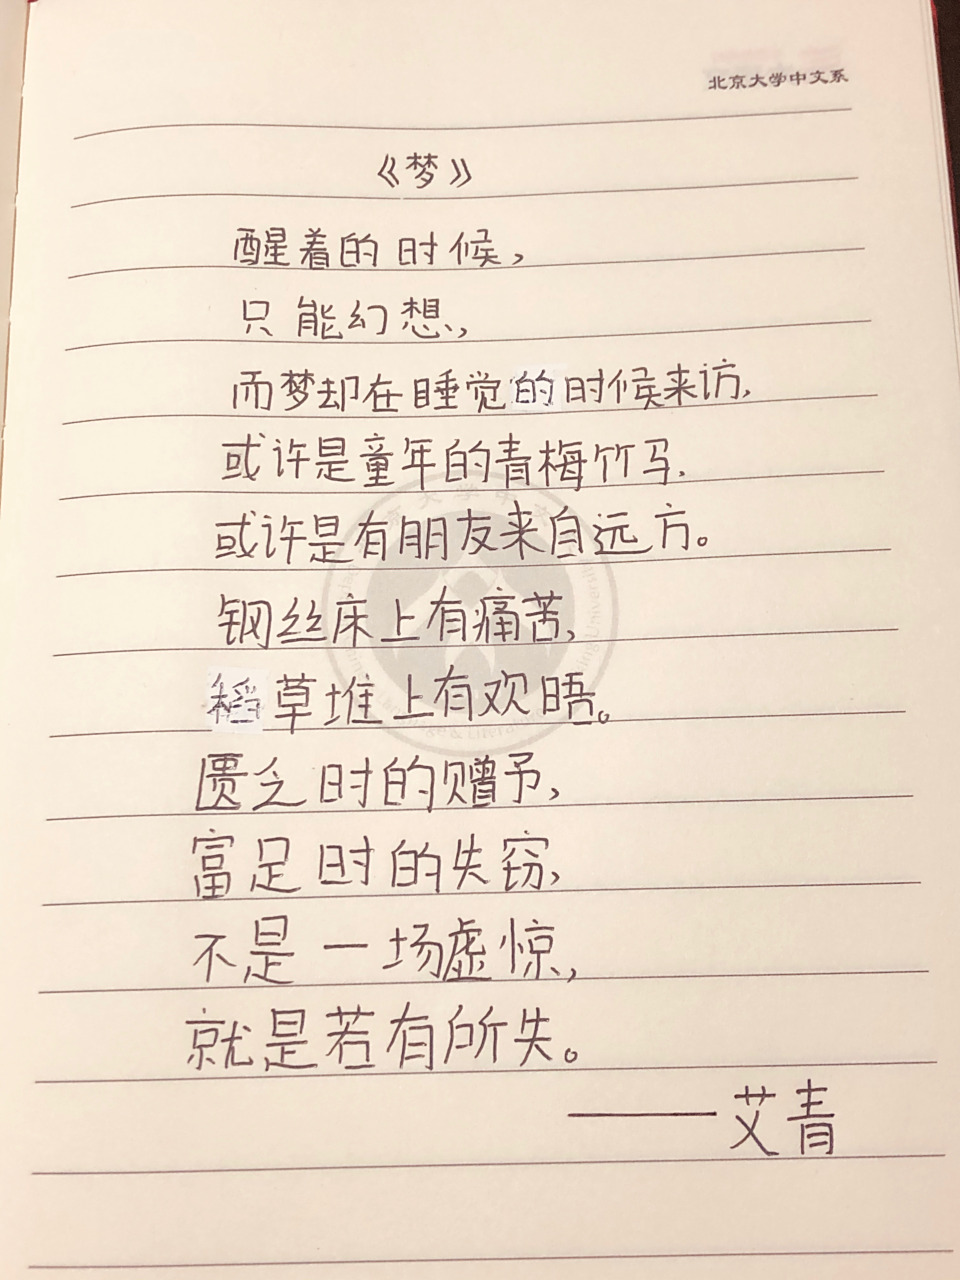 北京大学中文系
《梦》
醒着的时候,
只能幻想,
而梦却在睡觉的时候来访,
或许是童年的青梅竹马,
或许是有朋友来自远方。
钢丝床上有痛苦,
稻草堆上有欢晤。
匮乏时的赠予,
富足时的失窃,
不是一场虚惊,
就是若有所失。
——艾青